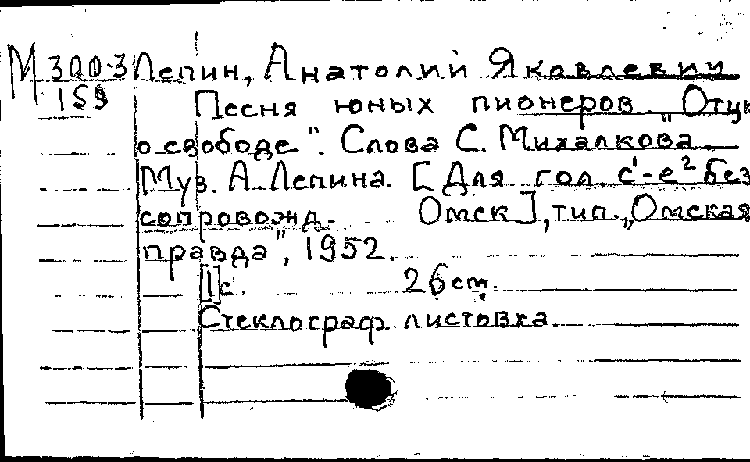 М 300-3 Лепин, Анатолий Яковлевич
159 Песня юных пионеров „Отцы
о свободе". Слова С. Михалкова
Муз. А. Лепина. [Для гол c¹-e² без
сопровожд. Омск], тип. „Омская
правда", 1952.
[1]с. 26 см.
Стеклограф. листовка